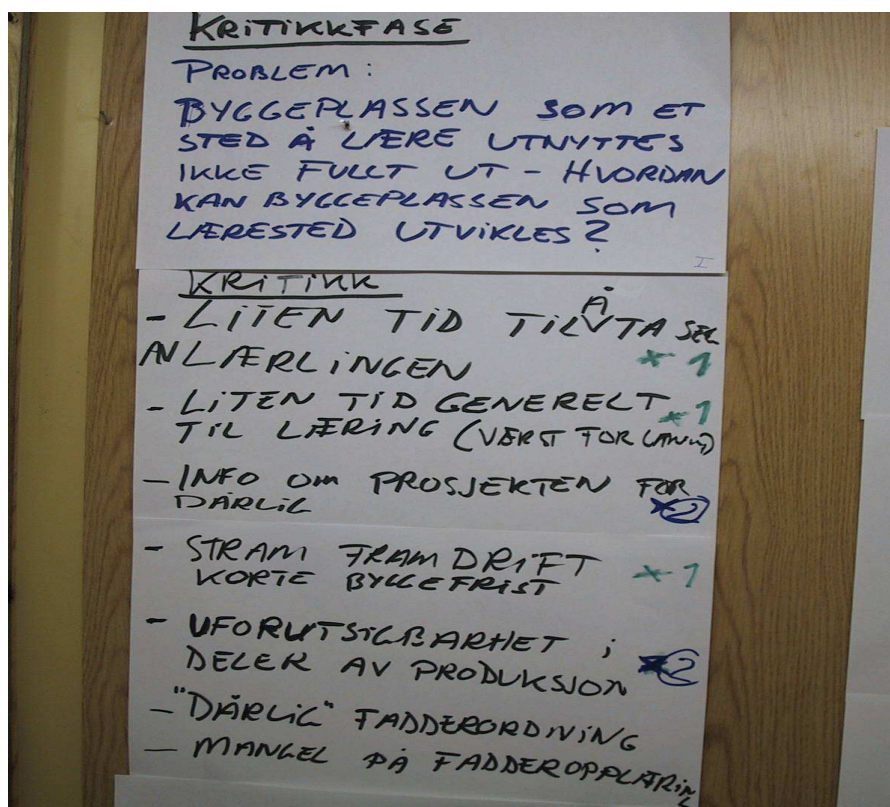 KRITIKKFASE
PROBLEM:
BYGGEPLASSEN SOM ET
STED Å LÆRE UTNYTTES
IKKE FULLT UT - HVORDAN
KAN BYGGEPLASSEN SOM
LÆRESTED UTVIKLES?
I
KRITIKK
- LITEN TID TIL Å TA SEG
AV LÆRLINGEN * 1
- LITEN TID GENERELT * 1
TIL LÆRING (VERST FOR
- INFO OM PROSJEKTEN FOR
DÅRLIG * 2
- STRAM FRAMDRIFT
KORTE BYGGEFRIST * 1
- UFORUTSIGBARHET i
DELER AV PRODUKSJON * 2
- "DÅRLIG" FADDERORDNING
- MANGEL PÅ FADDEROPPLÆRING